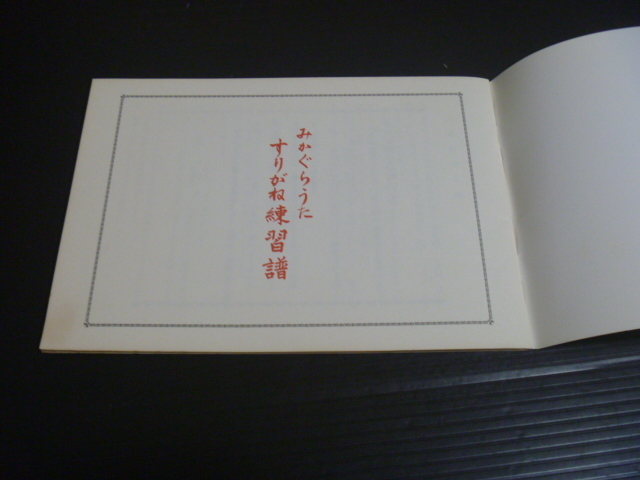 みかぐらうた
すりがね練習譜